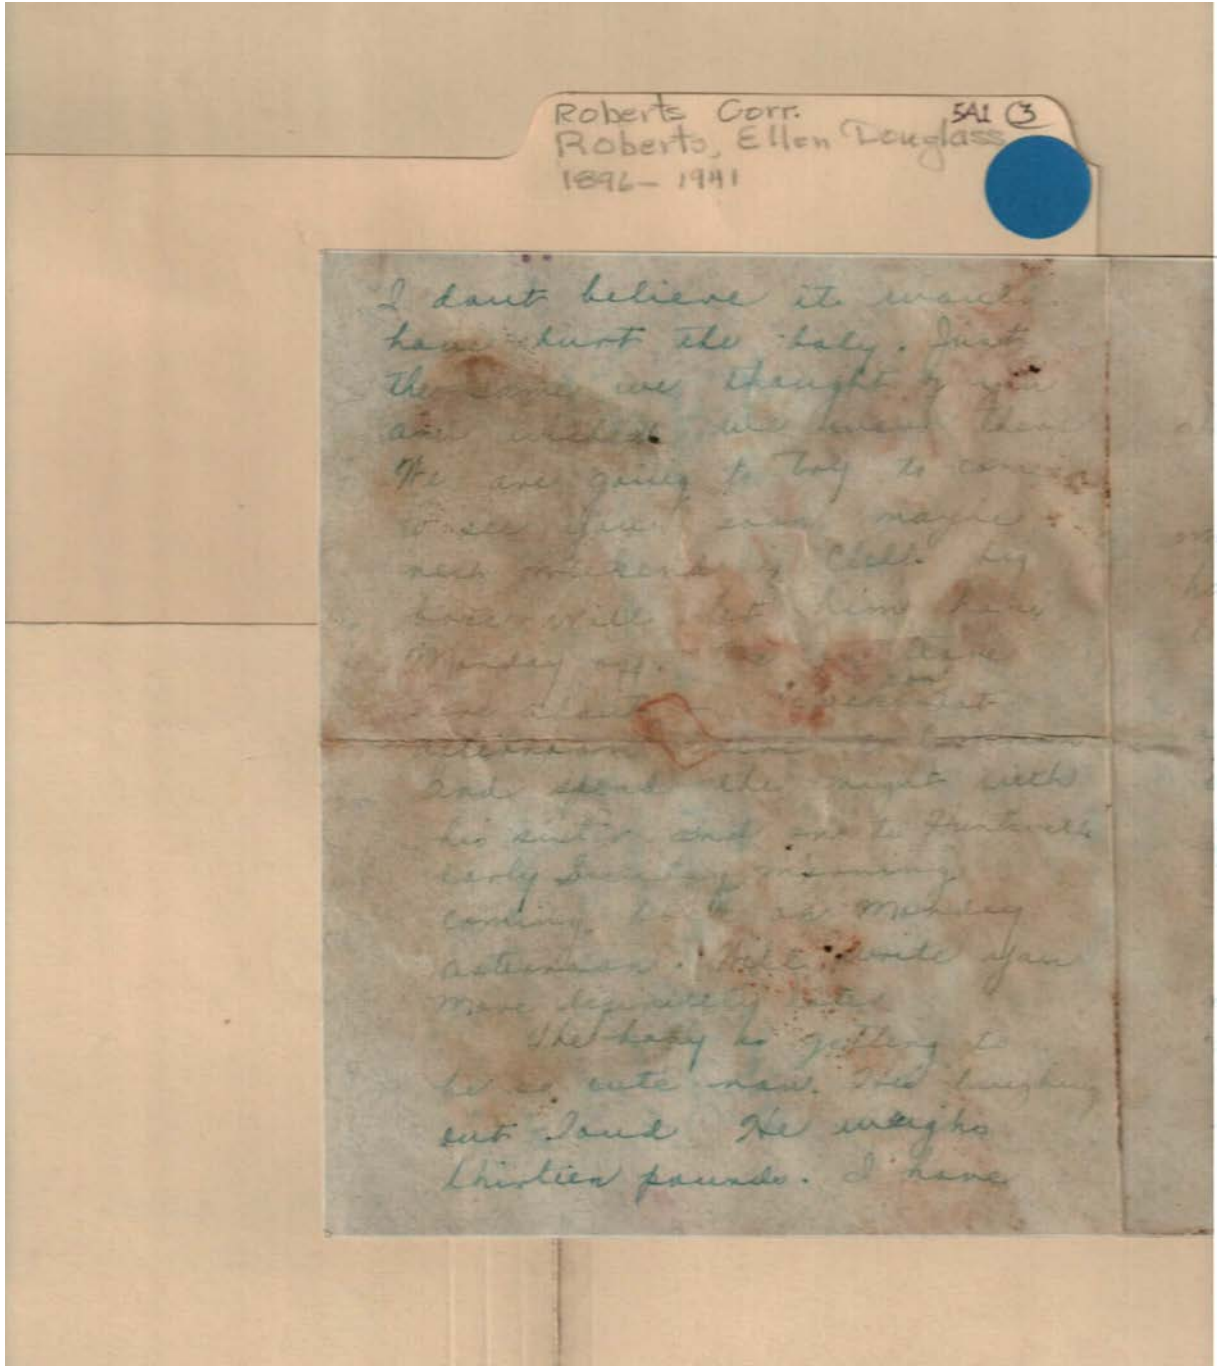 Roberts Corr. 5A1 3
Roberts, Ellen Douglass
1896-1941
I dont believe it would
have hurt the baby. Just
the same we thought of you
and wished we were there
We are going to try to come
to see you soon maybe
next weekend if
boss will let him have
Monday off. leave
afternoon
and spend the night with
his sister and on to Huntsville
early Sunday morning
coming back on Monday
afternoon. Will write you
more definitely later
The baby is getting to
be so cute now. He's laughing
out loud He weighs
thirteen pounds. I have